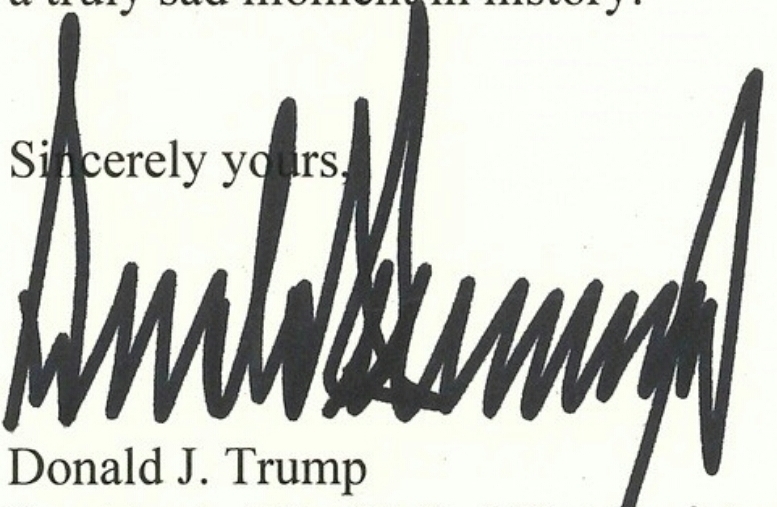 a truly sad moment in history!
Sincerely yours,
Donald J. Trump